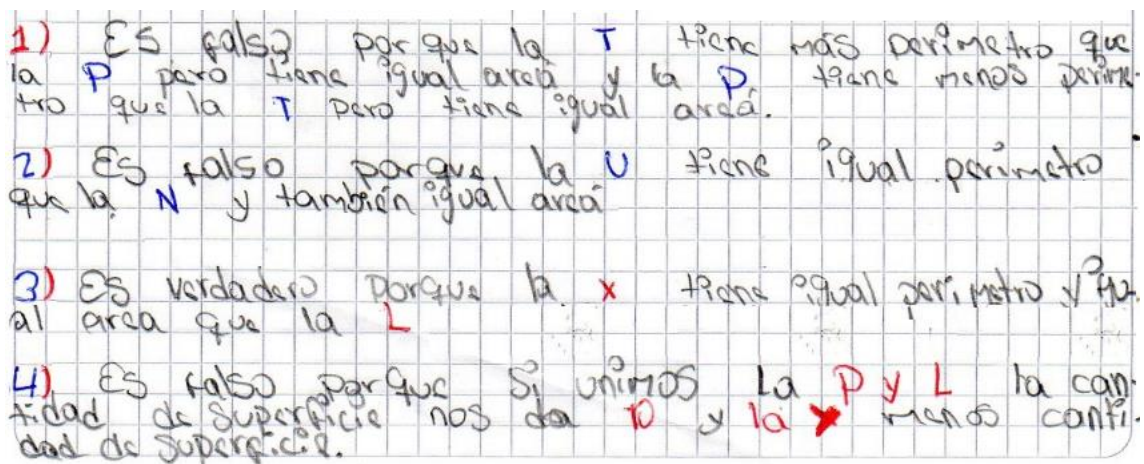 1) Es falso porque la T tiene más perímetro que
la P pero tiene igual areá y la P tiene menos períme-
tro que la T pero tiene igual areá.
2) Es falso porque la U tiene igual perimetro
que la N y también igual areá
3) Es verdadero porque la x tiene igual perimetro y igu-
al area que la L
4) Es falso porque si unimos La P y L la can-
tidad de superficie nos da 10 y la menos canti-
dad de superficie.